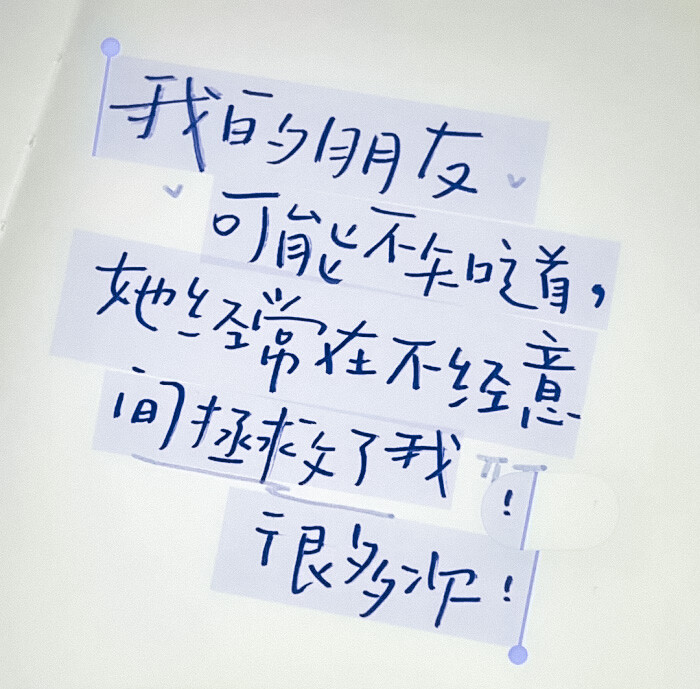 我的朋友
可能不知道，
她经常在不经意
间拯救了我
！
很多次！